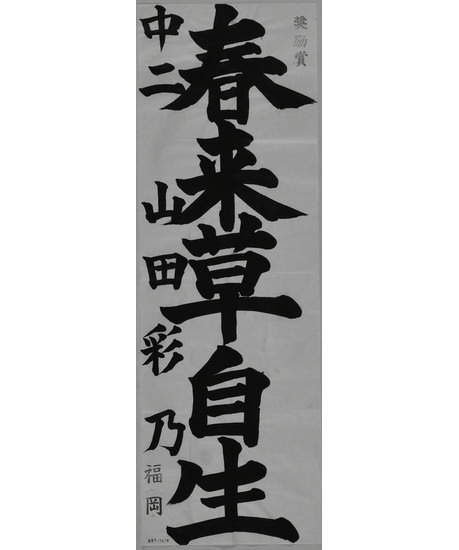 奨励賞
春来草自生
中二 山田彩乃
福岡